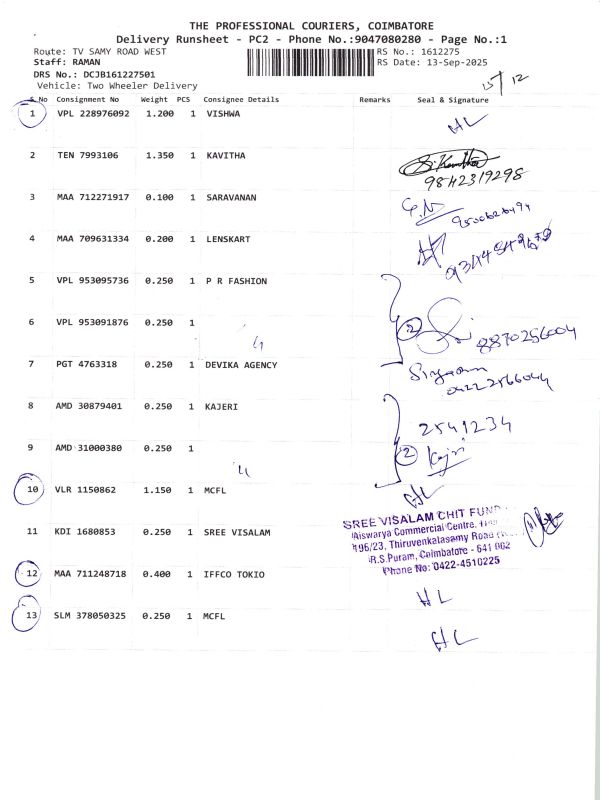 THE PROFESSIONAL COURIERS, COIMBATORE
Delivery Runsheet - PC2 - Phone No.:9047080280 - Page No.:1
Route: TV SAMY ROAD WEST RS No.: 1612275
Staff: RAMAN RS Date: 13-Sep-2025
DRS No.: DCJB161227501
Vehicle: Two Wheeler Delivery
S No Consignment No Weight PCS Consignee Details Remarks Seal & Signature
1 VPL 228976092 1.200 1 VISHWA HL
2 TEN 7993106 1.350 1 KAVITHA
9842319298
3 MAA 712271917 0.100 1 SARAVANAN
4 MAA 709631334 0.200 1 LENSKART
5 VPL 953095736 0.250 1 P R FASHION
6 VPL 953091876 0.250 1 " 2 8870256004
7 PGT 4763318 0.250 1 DEVIKA AGENCY
0422 2566044
8 AMD 30879401 0.250 1 KAJERI 2541234
9 AMD 31000380 0.250 1 " 2 Kajri
10 VLR 1150862 1.150 1 MCFL HL
11 KDI 1680853 0.250 1 SREE VISALAM
SREE VISALAM CHIT FUND
Aiswarya Commercial Centre,
196/23, Thiruvenkatasamy Road
R.S.Puram, Coimbatore - 641 002
Phone No: 0422-4510225
12 MAA 711248718 0.400 1 IFFCO TOKIO HL
13 SLM 378050325 0.250 1 MCFL HL